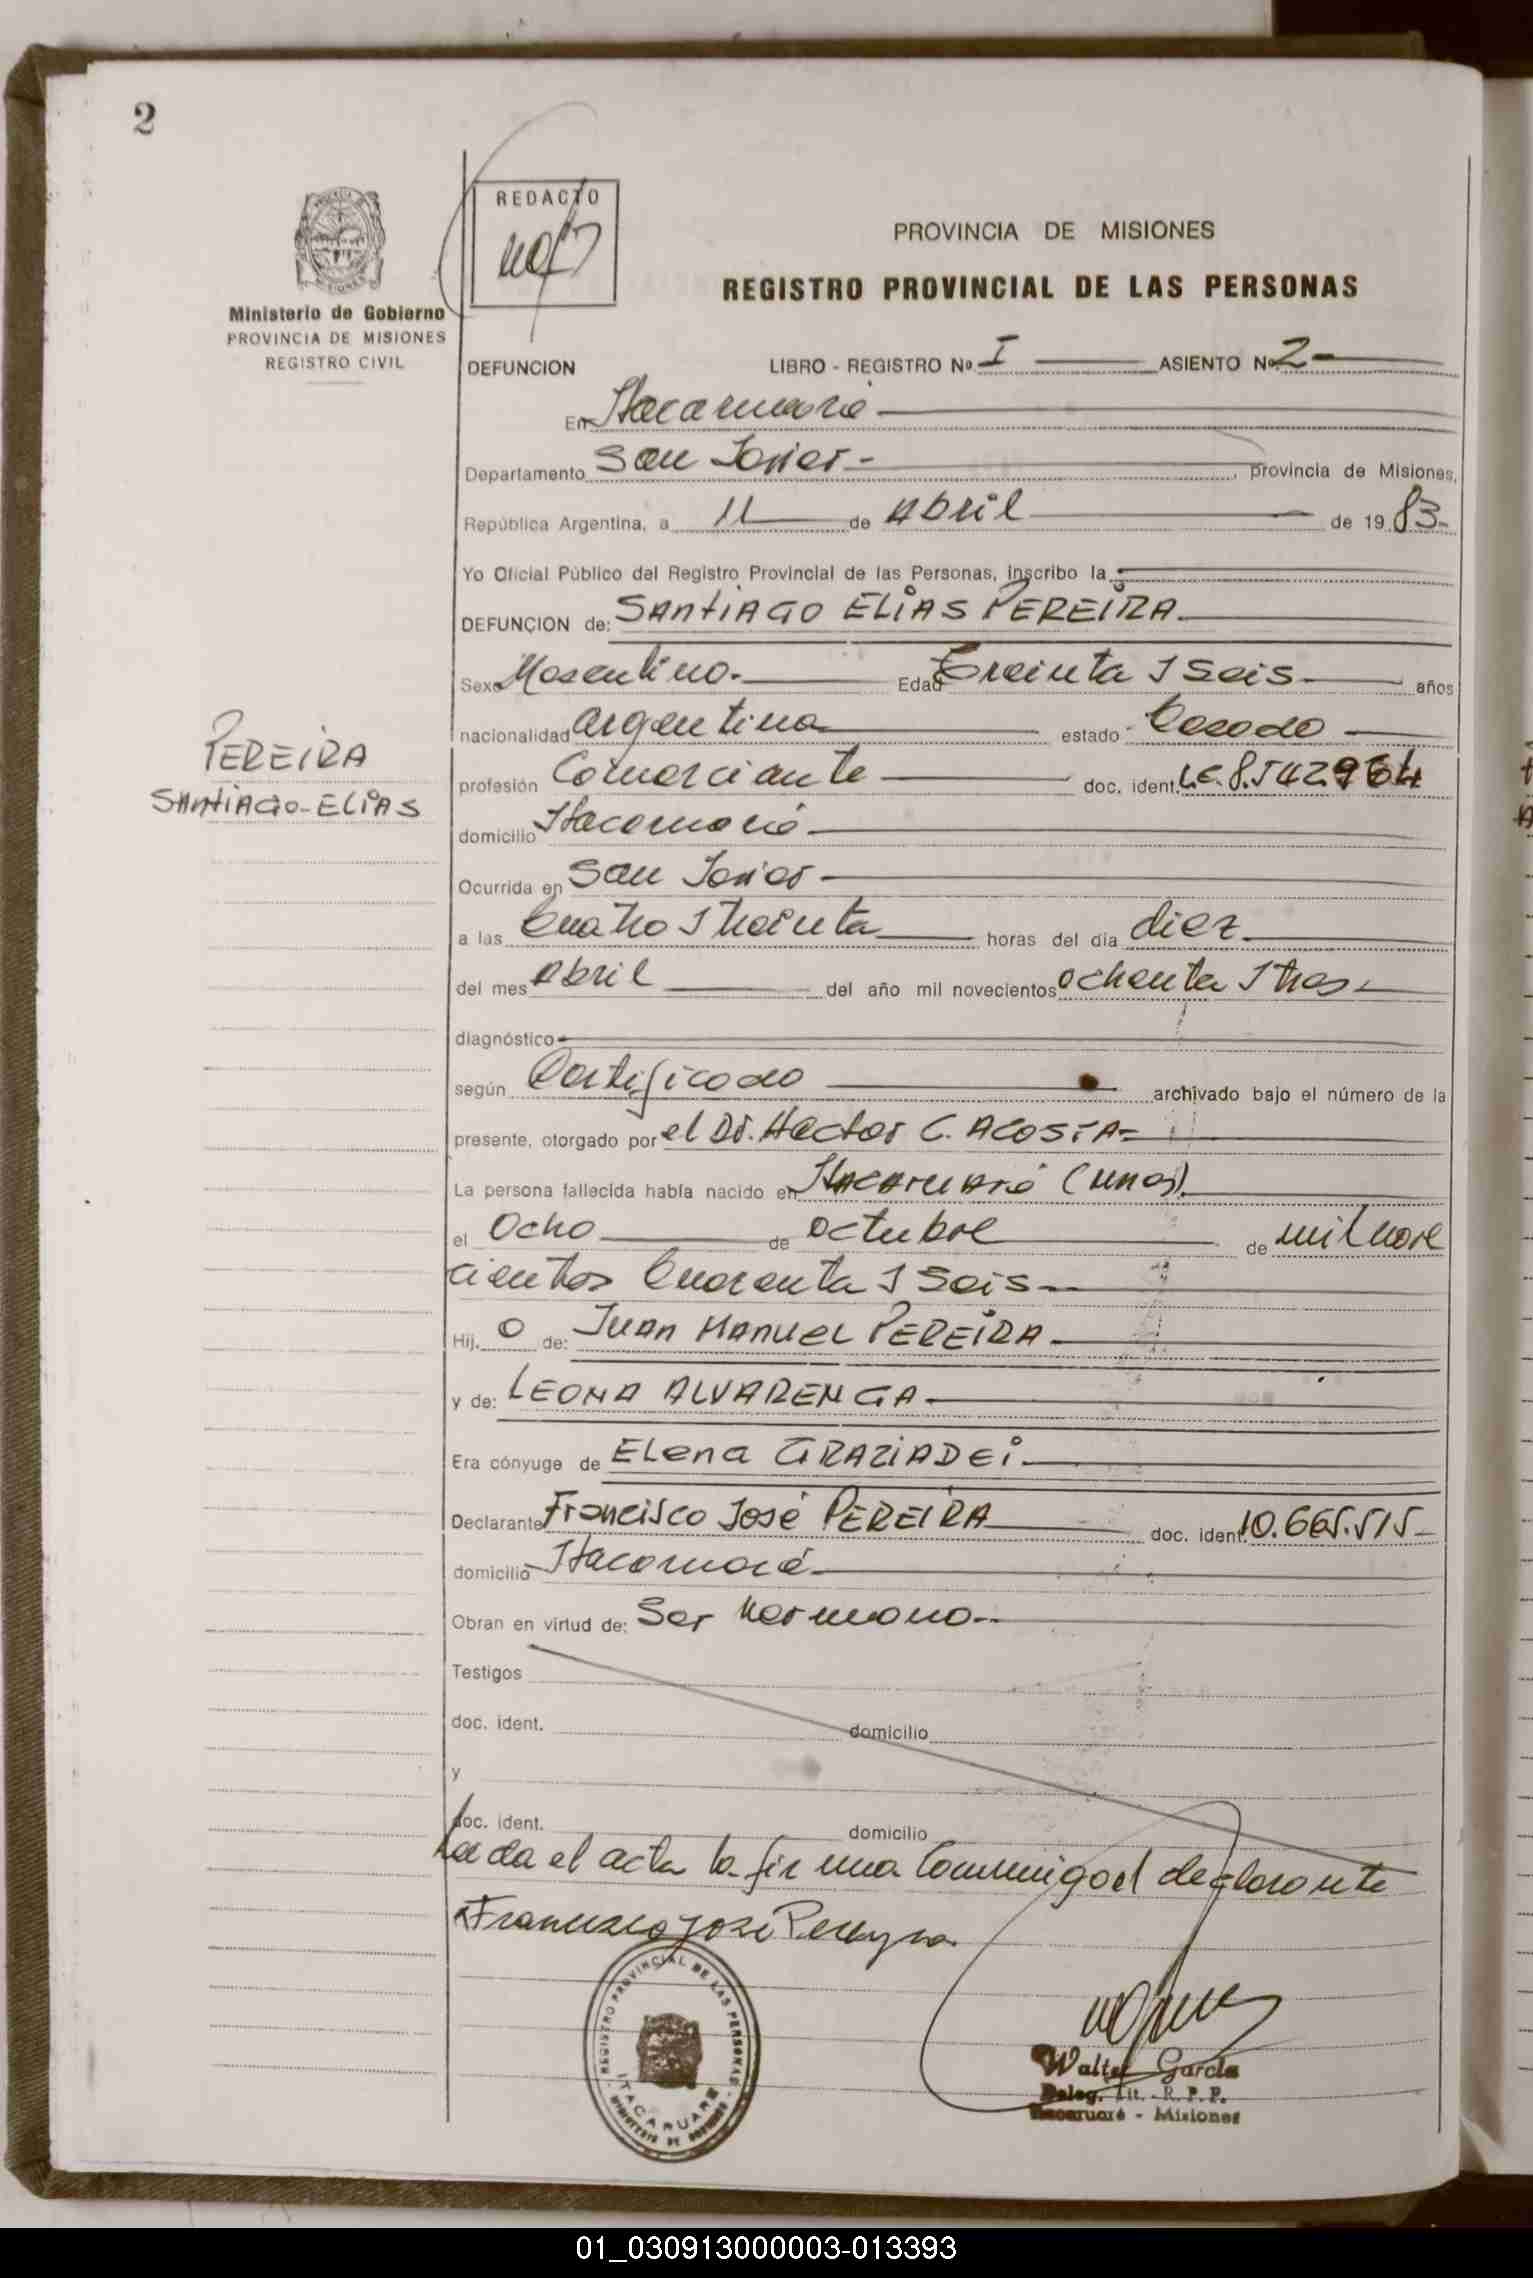 2
REDACTO
PROVINCIA DE MISIONES
REGISTRO PROVINCIAL DE LAS PERSONAS
Ministerio de Gobierno
PROVINCIA DE MISIONES
REGISTRO CIVIL
DEFUNCION LIBRO - REGISTRO Nº I ASIENTO Nº 2-
En Itacaruaré
Departamento San Javier - provincia de Misiones,
República Argentina, a 11 de Abril de 1983-
Yo Oficial Público del Registro Provincial de las Personas, inscribo la
DEFUNCION de: SANTIAGO ELIAS PEREIRA
Sexo Masculino. Edad Treinta y Seis años
nacionalidad argentina estado Casado
PEREIRA
SANTIAGO-ELIAS
profesión Comerciante doc. ident. L.E. 8.542.964
domicilio Itacaruaré
Ocurrida en San Javier
a las Cuatro y treinta horas del día diez
del mes Abril del año mil novecientos ochenta y tres
diagnóstico
según Certificado archivado bajo el número de la
presente, otorgado por el Dr. Hector C. ACOSTA-
La persona fallecida había nacido en Itacaruaré (Mnes).
el Ocho de octubre de mil nove
cientos Cuarenta y Seis
Hij. o de: JUAN MANUEL PEREIRA
y de: LEONA ALVARENGA
Era cónyuge de ELENA GRAZIADEI
Declarante Francisco José PEREIRA doc. ident. 10.665.515-
domicilio Itacaruaré
Obran en virtud de: Ser hermano
Testigos
doc. ident. domicilio
y
doc. ident. domicilio
Leida el acta la firma Conmigo el declarante
Francisco Jose Pereyra
REGISTRO PROVINCIAL DE LAS PERSONAS
ITACARUARE
MINISTERIO DE GOBIERNO
Walter García
Deleg. Tit. - R. P. P.
Itacaruaré - Misiones
01_030913000003-013393